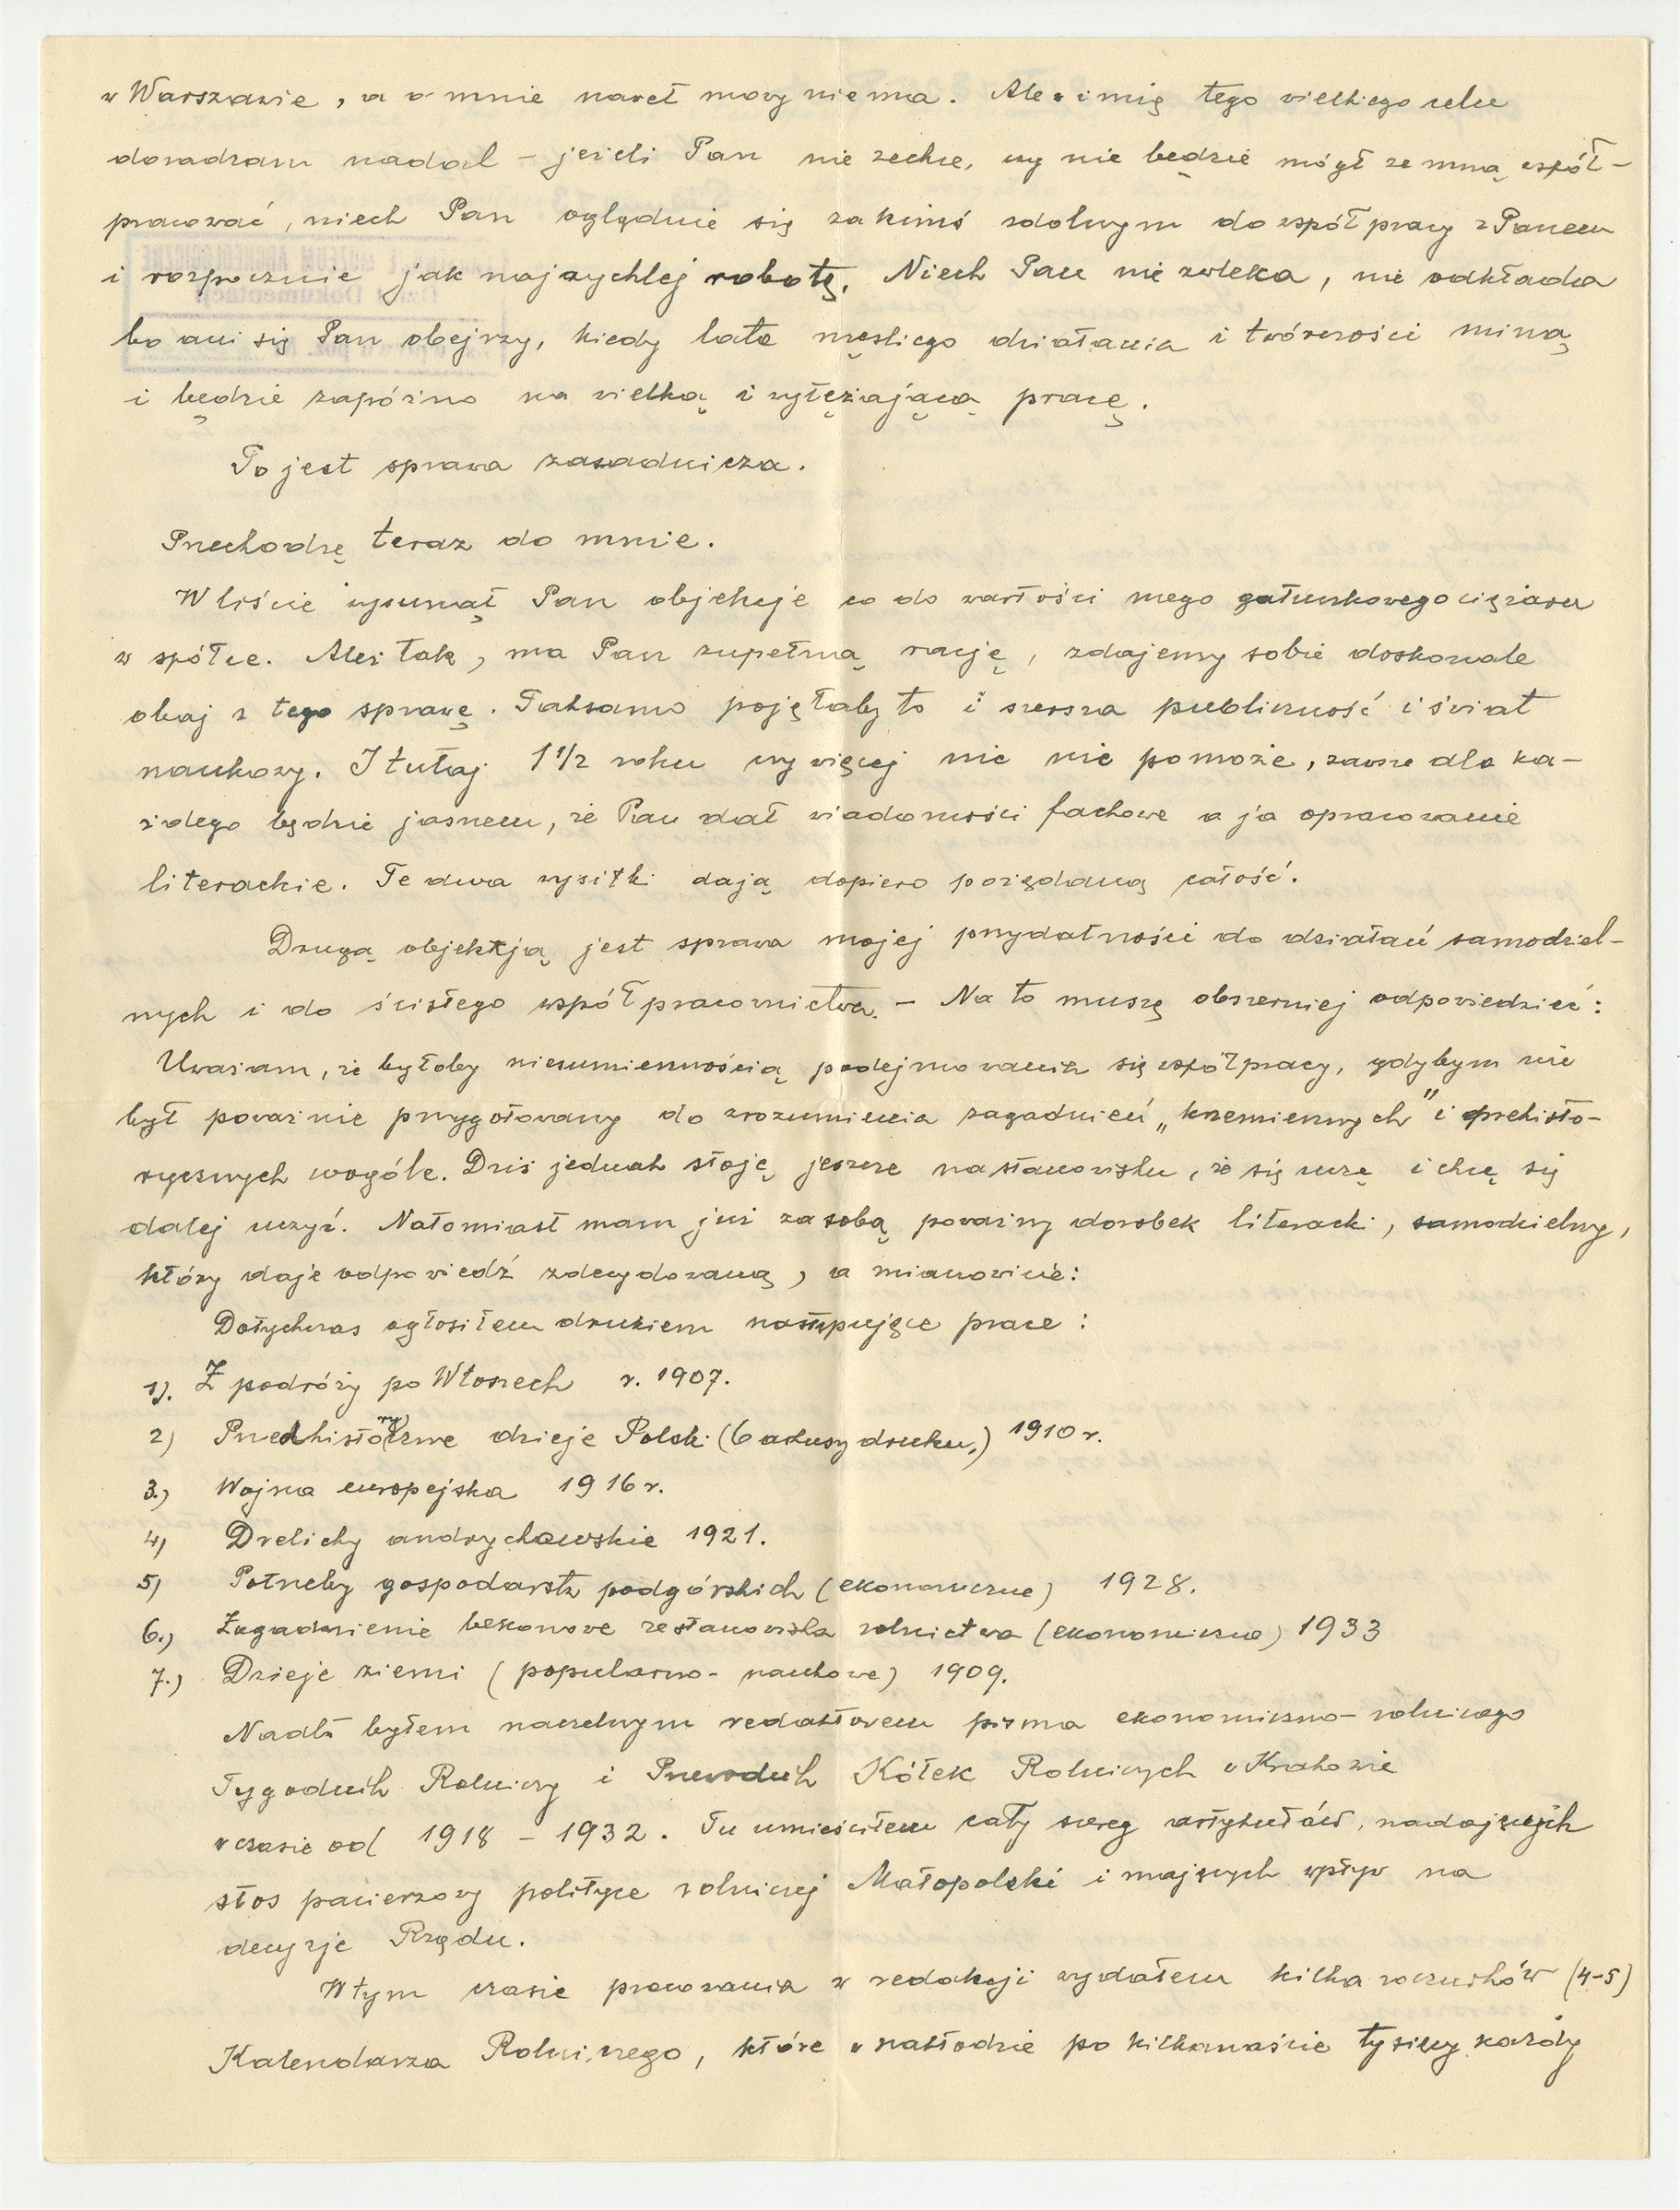 w Warszawie, a o mnie nawet mowy niema. Ale w imię tego wielkiego celu
doradzam nadal – jeżeli Pan nie zechce, czy nie będzie mógł ze mną współ-
pracować, niech Pan oględnie się za kimś zdolnym do współpracy z Panem
i rozpocznie jak najrychlej robotę. Niech Pan nie zwleka, nie odkłada
bo ani się Pan obejrzy, kiedy lata męskiego działania i twórczości miną
i będzie zapóźno na wielką i wytężającą pracę.
To jest sprawa zasadnicza.
Przechodzę teraz do mnie.
W liście wysunął Pan objekcje co do wartości mego gatunkowego ciężaru
w spółce. Ależ tak, ma Pan zupełną rację, zdajemy sobie doskonale
obaj z tego sprawę. Taksamo pojęłaby to i szersza publiczność i świat
naukowy. I tutaj 1 1/2 roku czy więcej nic nie pomoże, zawsze dla ka-
żdego będzie jasnem, że Pan dał wiadomości fachowe a ja opracowanie
literackie. Te dwa wysiłki dają dopiero pożądaną całość.
Drugą objekcją jest sprawa mojej przydatności do działań samodziel-
nych i do ścisłego współpracownictwa. – Na to muszę obszerniej odpowiedzieć:
Uważam, że byłoby niesumiennością podejmowania się współpracy, gdybym nie
był poważnie przygotowany do zrozumienia zagadnień „krzemiennych" i prehisto-
rycznych wogóle. Dziś jednak stoję jeszcze na stanowisku, że się uczę i chcę się
dalej uczyć. Natomiast mam już za sobą poważny dorobek literacki, samodzielny,
który daje odpowiedź zdecydowaną, a mianowicie:
Dotychczas ogłosiłem drukiem następujące prace:
1). Z podróży po Włoszech r. 1907.
2) Przedhistoryczne dzieje Polski (6 arkuszy druku.) 1910 r.
3.) Wojna europejska 1916 r.
4) Drelichy andrychowskie 1921.
5) Potrzeby gospodarstw podgórskich (ekonomiczne) 1928.
6.) Zagadnienie bekonowe ze stanowiska rolnictwa (ekonomiczne) 1933
7.) Dzieje ziemi (popularno-naukowe) 1909.
Nadto byłem naczelnym redaktorem pisma ekonomiczno-rolniczego
Tygodnik Rolniczy i Przewodnik Kółek Rolniczych w Krakowie
w czasie od 1918 – 1932. Tu umieściłem cały szereg artykułów, nadających
stos pacierzowy polityce rolniczej Małopolski i mających wpływ na
decyzje Rządu.
W tym czasie pracowania w redakcji wydałem kilka roczników (4-5)
Kalendarza Rolniczego, które w nakładzie po kilkanaście tysięcy każdy